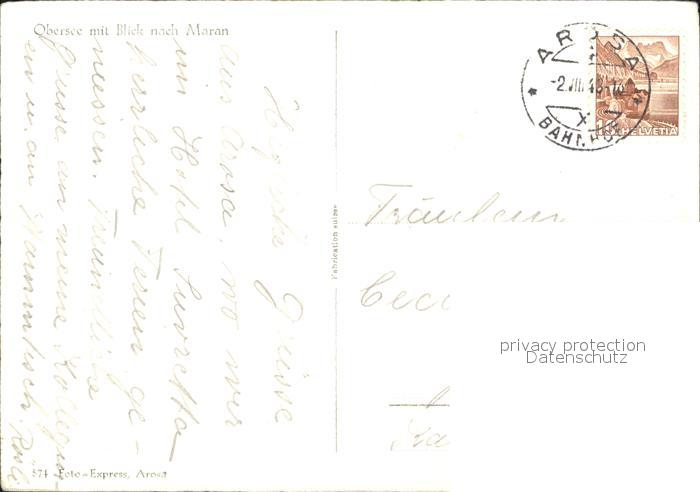 Obersee mit Blick nach Maran
Herzliche Grüsse
aus Arosa, wo wir
im Hotel Suvretta
herrliche Ferien ge-
niessen. Freundliche
Grüsse an meine
en u. an Stammtisch. Rösli
574 Foto-Express, Arosa
Fabrication suisse
AROSA
-2.VIII.48-10
BAHNHOF
10 HELVETIA
Fräulein
Ceci
privacy protection
Datenschutz